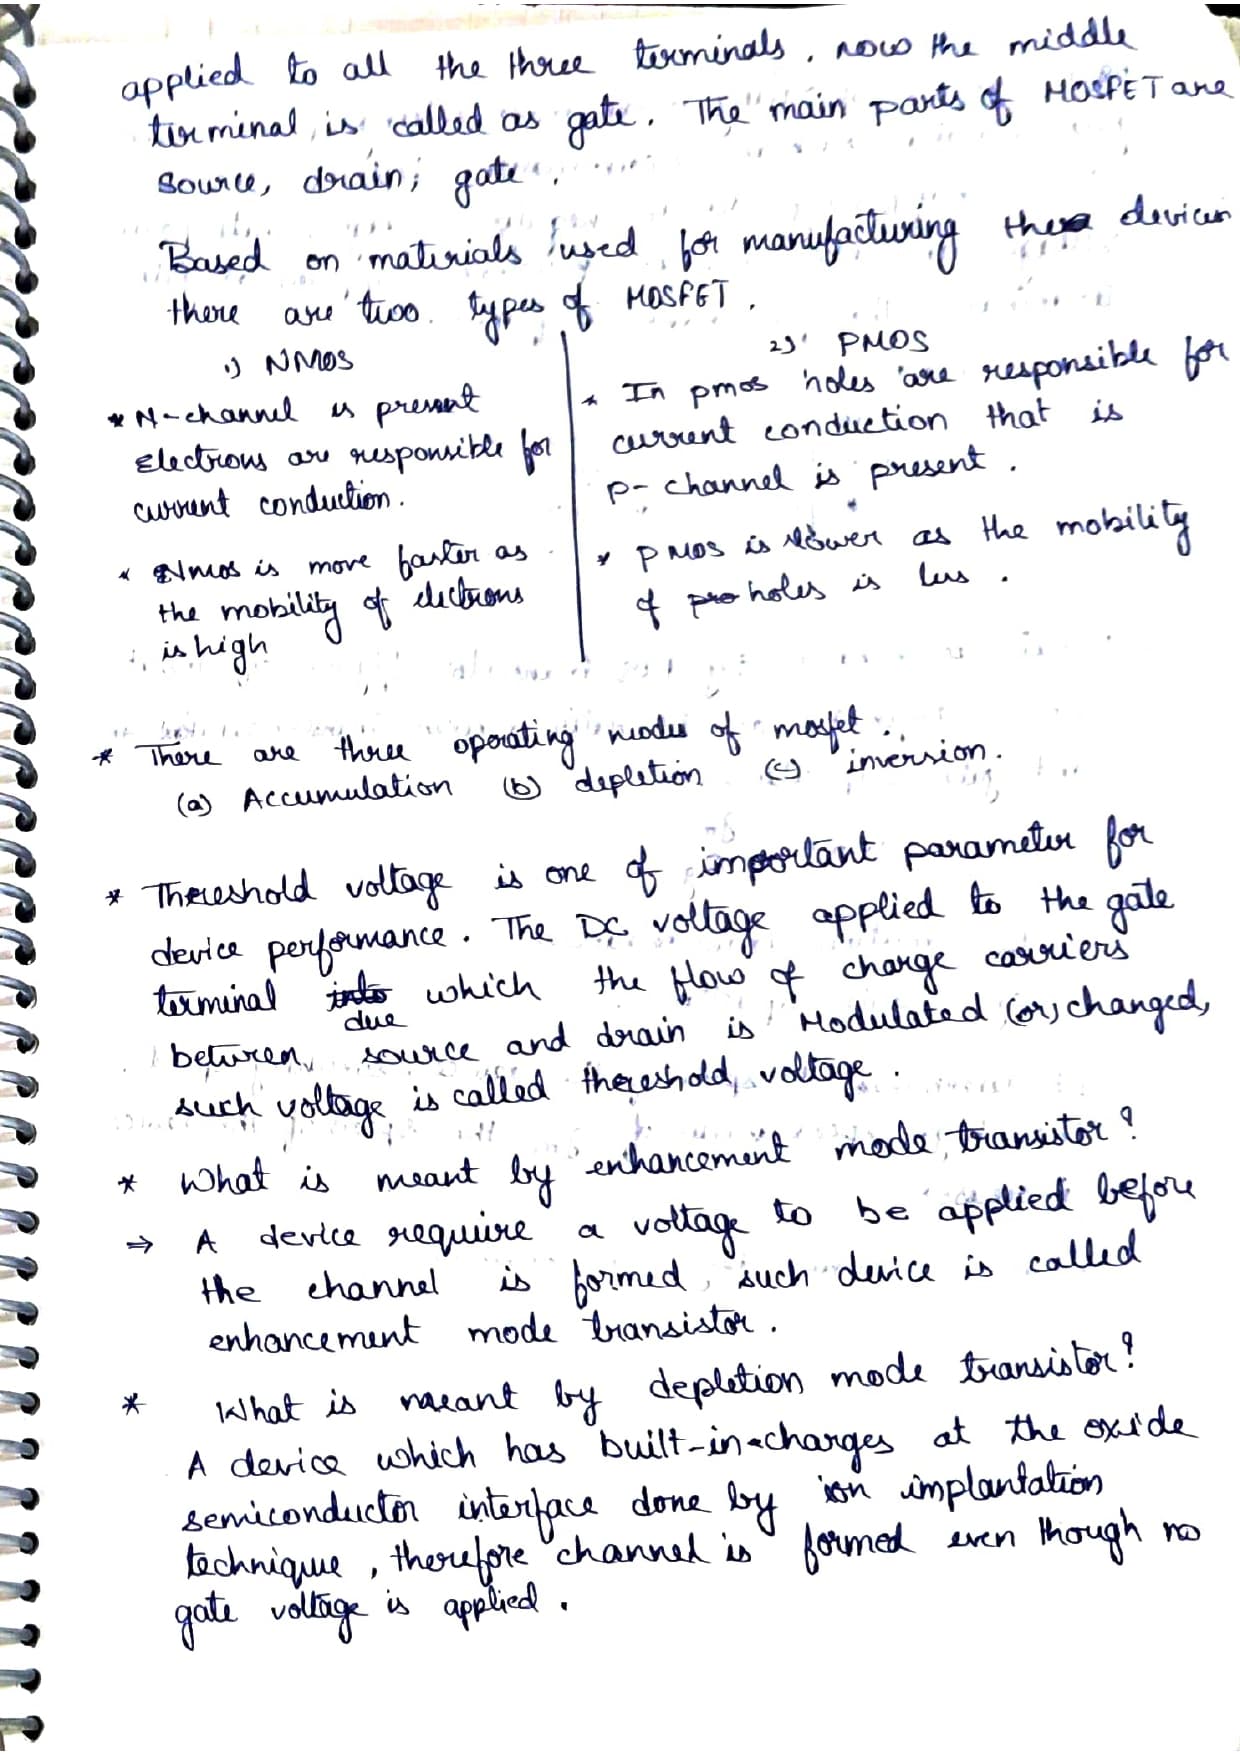 applied to all the three terminals. now the middle
terminal is called as gate. The main parts of MOSFET are
Source, drain, gate.
Based on materials used for manufacturing these devices
there are two types of MOSFET.
1) NMOS
* N-channel is present
Electrons are responsible for
current conduction.
* Nmos is more faster as
the mobility of electrons
is high
2) PMOS
* In pmos holes are responsible for
current conduction that is
p-channel is present.
* PMOS is slower as the mobility
of holes is less.
* There are three operating modes of mosfet.
(a) Accumulation (b) depletion (c) inversion.
* Thereshold voltage is one of important parameter for
device performance. The DC voltage applied to the gate
terminal due which the flow of charge carriers
between source and drain is Modulated (or) changed,
such voltage is called thereshold voltage.
* What is meant by enhancement mode transistor?
⇒ A device require a voltage to be applied before
the channel is formed, such device is called
enhancement mode transistor.
* What is meant by depletion mode transistor?
A device which has built-in-charges at the oxide
semiconductor interface done by ion implantation
technique, therefore channel is formed even though no
gate voltage is applied.